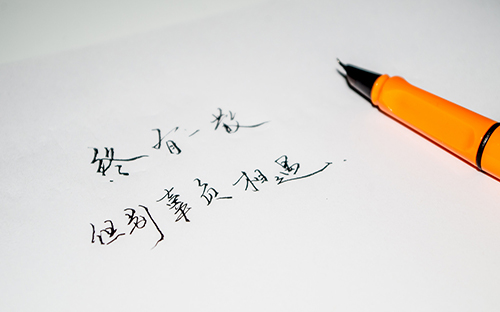 终有一散
但别辜负相遇.